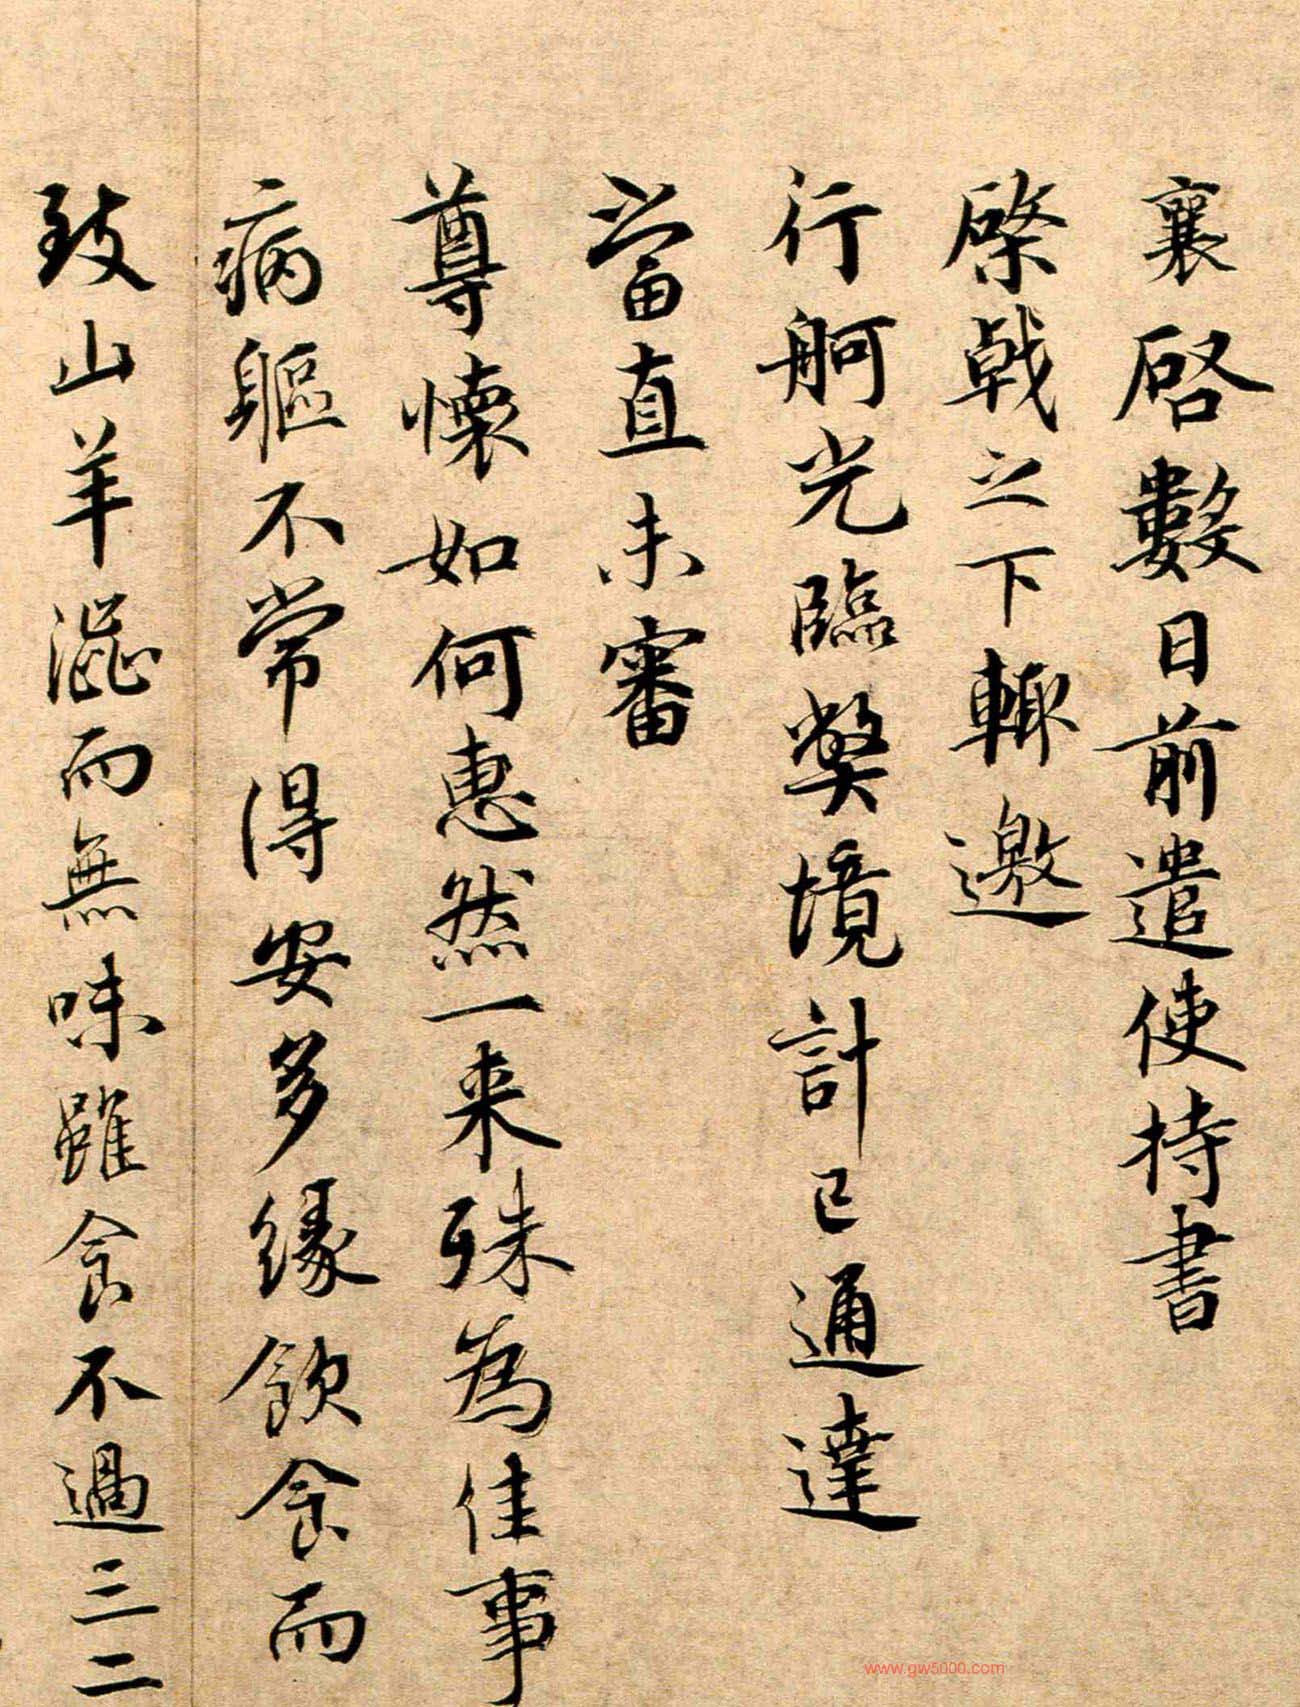 襄啓數日前遣使持書
棨戟之下輙邀
行舸光臨弊境計已通達
當直未審
尊懷如何惠然一来殊為佳事
病軀不常得安多緣飲食而
致山羊澁而無味雖食不過三二
www.gw5000.com